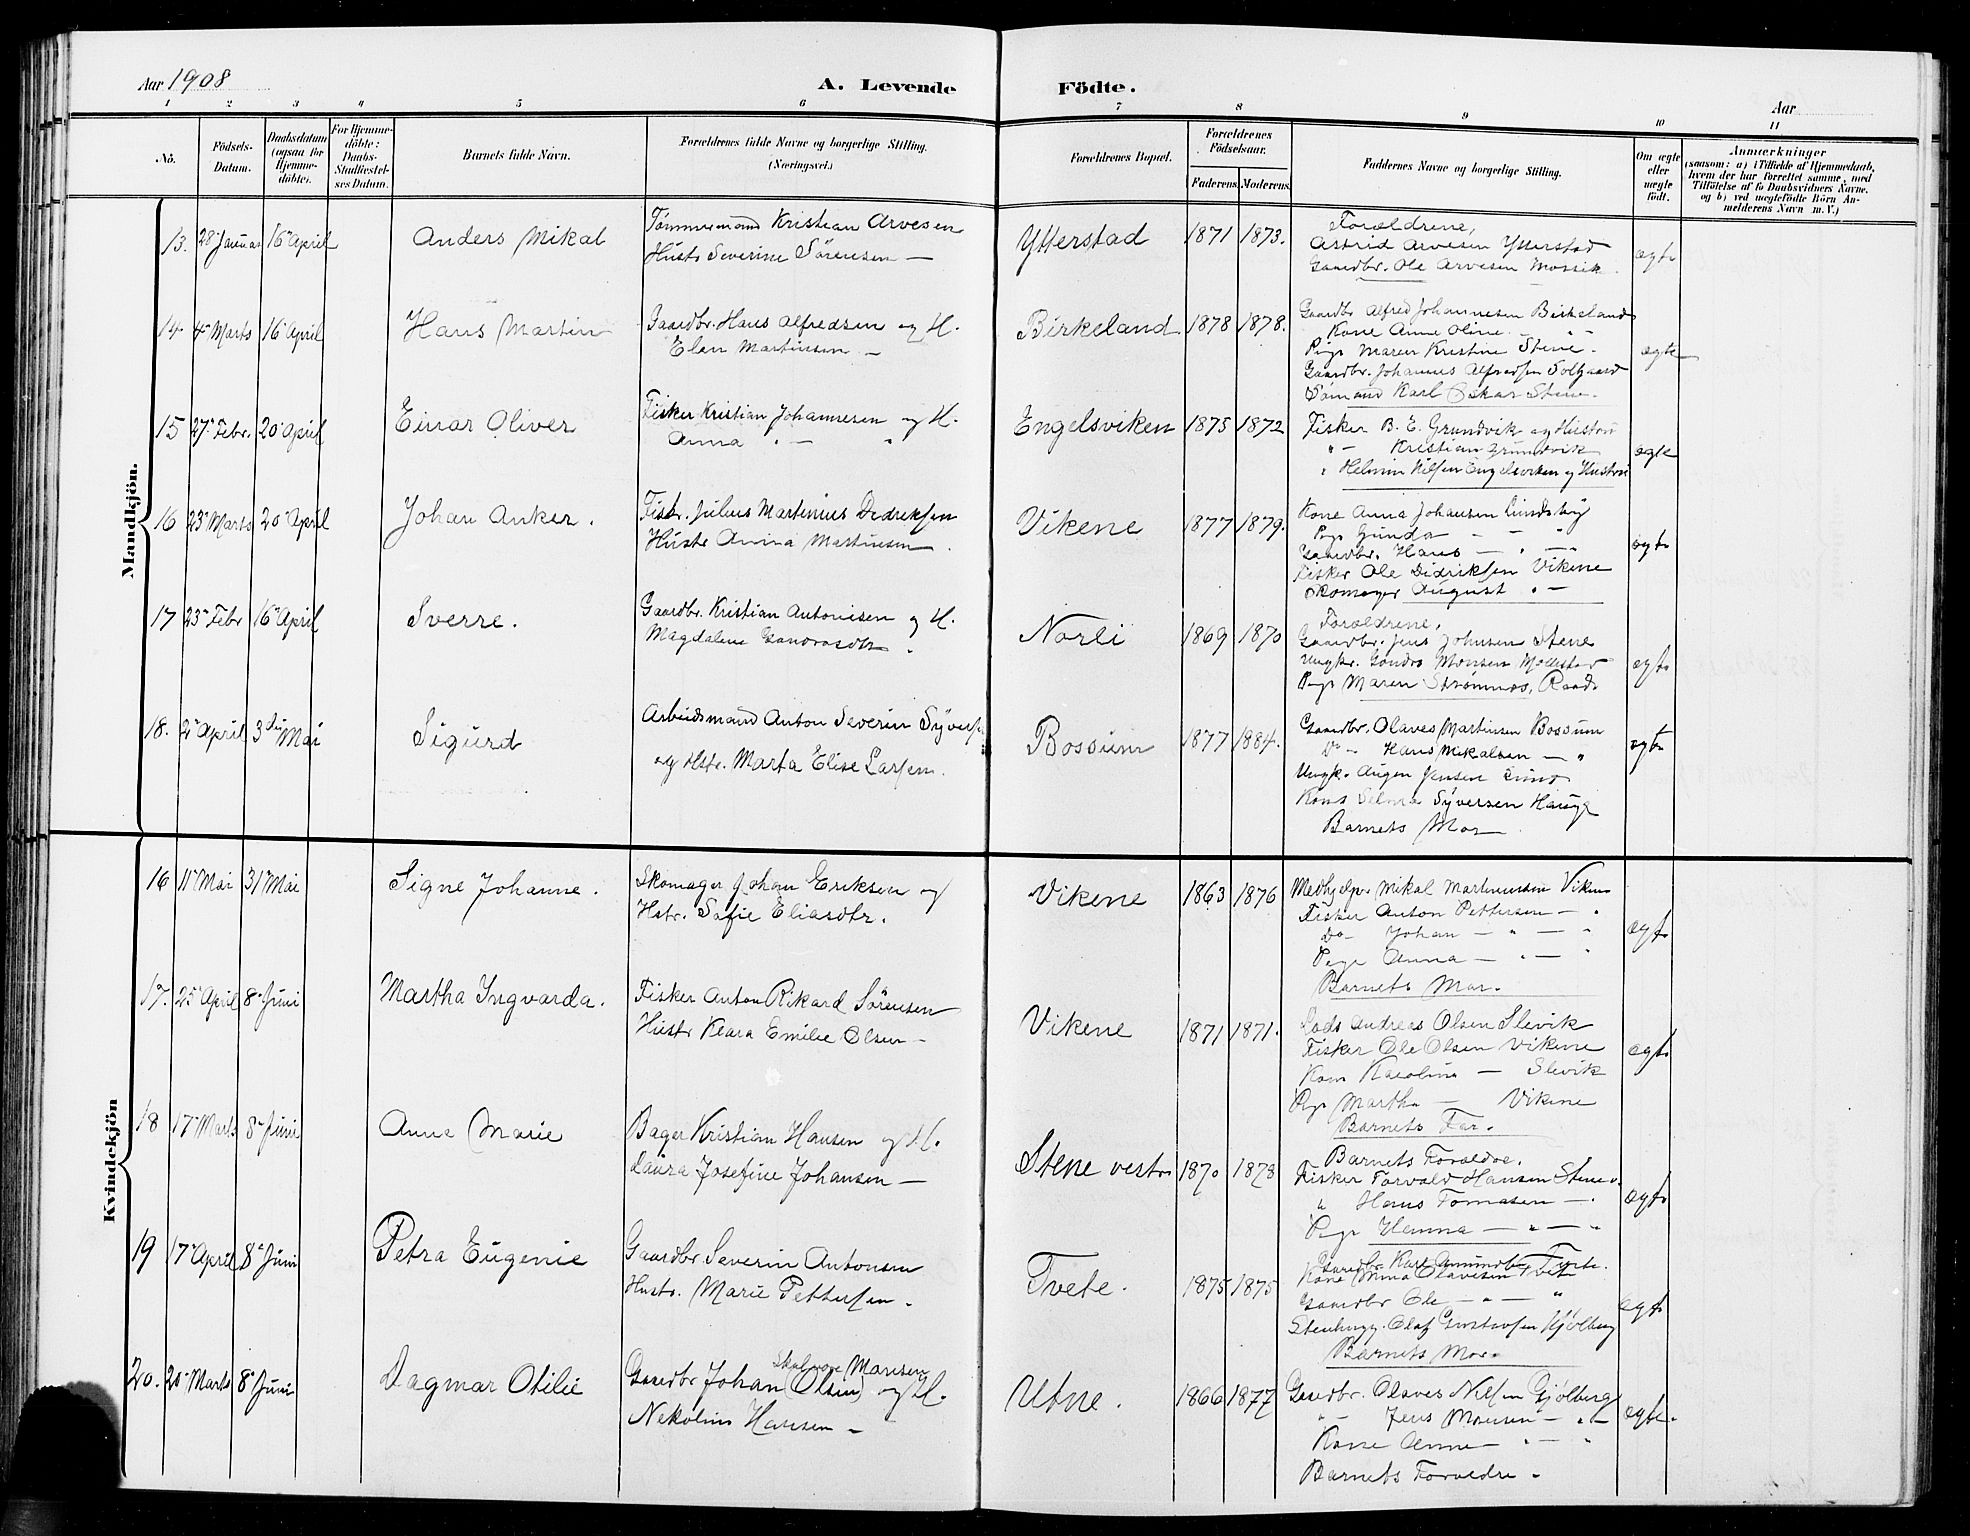 Aar 1908
A. Levende Födte.
Aar
1 2 3 4 5 6 7 8 9 10 11
No.
Födsels-Datum.
Daabsdatum (ogsaa for Hjemme-döbte).
For Hjemme-döbte: Daabs-Stadfæstel-ses Datum.
Barnets fulde Navn.
Forældrenes fulde Navne og borgerlige Stilling.
(Næringsvei.)
Forældrenes Bopæl.
Forældrenes Födselsaar.
Faderens. Moderens.
Faddernes Navne og borgerlige Stilling.
Om ægte eller uægte födt.
Anmærkninger
(saasom: a) i Tilfælde af Hjemmedaab,
hvem der har forrettet samme, med
Tilföielse af to Daabsvidners Navne.
og b) ved uægtefödte Börn An-
melderens Navn m. V.)
Mandkjön.
13. 28 Januar 16 April Anders Mikal
Tømmermand Kristian Arvesen
Hustr Severine Sörensen —
Ytterstad 1871 1873.
Forældrene,
Astrid Arvesen Ytterstad
Gaardbr. Ole Arvesen Mossik.
ægte
14 4 Marts 16 April Hans Martin
Gaardbr. Hans Alfredsen og H.
Elen Martinsen —
Birkeland 1878 1878.
Gaardbr Alfred Johannesen Birkeland
Kone Anne Oline — "
Pige Maren Kristine Stene.
Gaardbr. Johannes Alfredsen Solgaard
Sømand Karl Oskar Stene.
ægte
15 27 Febr. 20 April Einar Oliver
Fisker Kristian Johannesen og H.
Anna " — "
Engelsviken 1875 1872
Fisker B. E. Grundvik og Hustru
" — Kristian Grundvik
" Helmin Nilsen Engelsviken og Hustru
ægte
16 23 Marts 20 April Johan Anker.
Fiskr. Julius Martinius Didriksen
Hustr Anna Martinsen.
Vikene 1877 1879.
Kone Anna Johansen Lundsby
Pige Gunda — — "
Gaardbr. Hans — " —"
Fisker Ole Didriksen Vikene
Skomager August " —
ægte
17 23 Febr 16 April Sverre.
Gaardbr. Kristian Antonisen og H.
Magdalene "
Norli 1869 1870
Forældrene,
Gaardbr. Jens Johnsen Stene
Ungkr. Gondro Monsen
Pige Maren Strömnes, Raade
ægte
18. 2 April 3die Mai Sigurd
Arbeidsmand Anton Severin Syvers.
og Hstr. Marta Elise Larsen.
Bossum 1877 1884.
Gaardbr. Olaves Martinsen Bossum
Do — Hans Mikalsen — "
Ungk. Augen Jensen
Kone Selma Syversen Hauge
Barnets Mor
ægte
Kvindekjön
16 11 Mai 31 Mai Signe Johanne.
Skomager Johan Eriksen og
Hstr. Sofie Eliasdtr.
Vikene 1863 1876
Medhjelper Mikal Martinsen Viken
Fisker Anton Pettersen — "
Do Johan — " — "
Pige Anna — " — "
Barnets Mor.
ægte
17. 25 April 8 Juni Martha Ingvarda.
Fisker Anton Rikard Sörensen
Hustr Klara Emilie Olsen —
Vikene 1871 1871.
Lods Andreas Olsen Slevik
Fisker Ole Olsen Vikene
Kone Karoline — Slevik
Pige Martha — Vikene
Barnets Far.
ægte
18 17 Marts 8 Juni Anna Marie
Bager Kristian Hansen og H.
Laura Josefine Johansen —
Stene vestr. 1870 1878
Barnets Forældre.
Fisker Torvald Hansen Stene v.
" Hans Tomasen — "
Pige Hanna — " — "
ægte
19 17 April 8 Juni Petra Eugenie
Gaardbr Severin Antonsen
Hustr. Marie Pettersen.
Tvete. 1875 1875
Gaardbr. Karl Amundsen Tvete.
Kone Mina Olavesen Tvete
Gaardbr Ole — " — "
Stenhugg. Olaf Gustavsen Kjölberg
Barnets Mor.
ægte
20. 20 Marts 8 Juni Dagmar Otilie
Skal være Monsen
Gaardbr Johan (Olsen) og H.
Nekoline Hansen —
Utne. 1866 1877
Gaardbr. Olaves Nilsen Gjölberg
" — Jens Monsen — " —
Kone Anne — " — "
Barnets Forældre.
ægte.